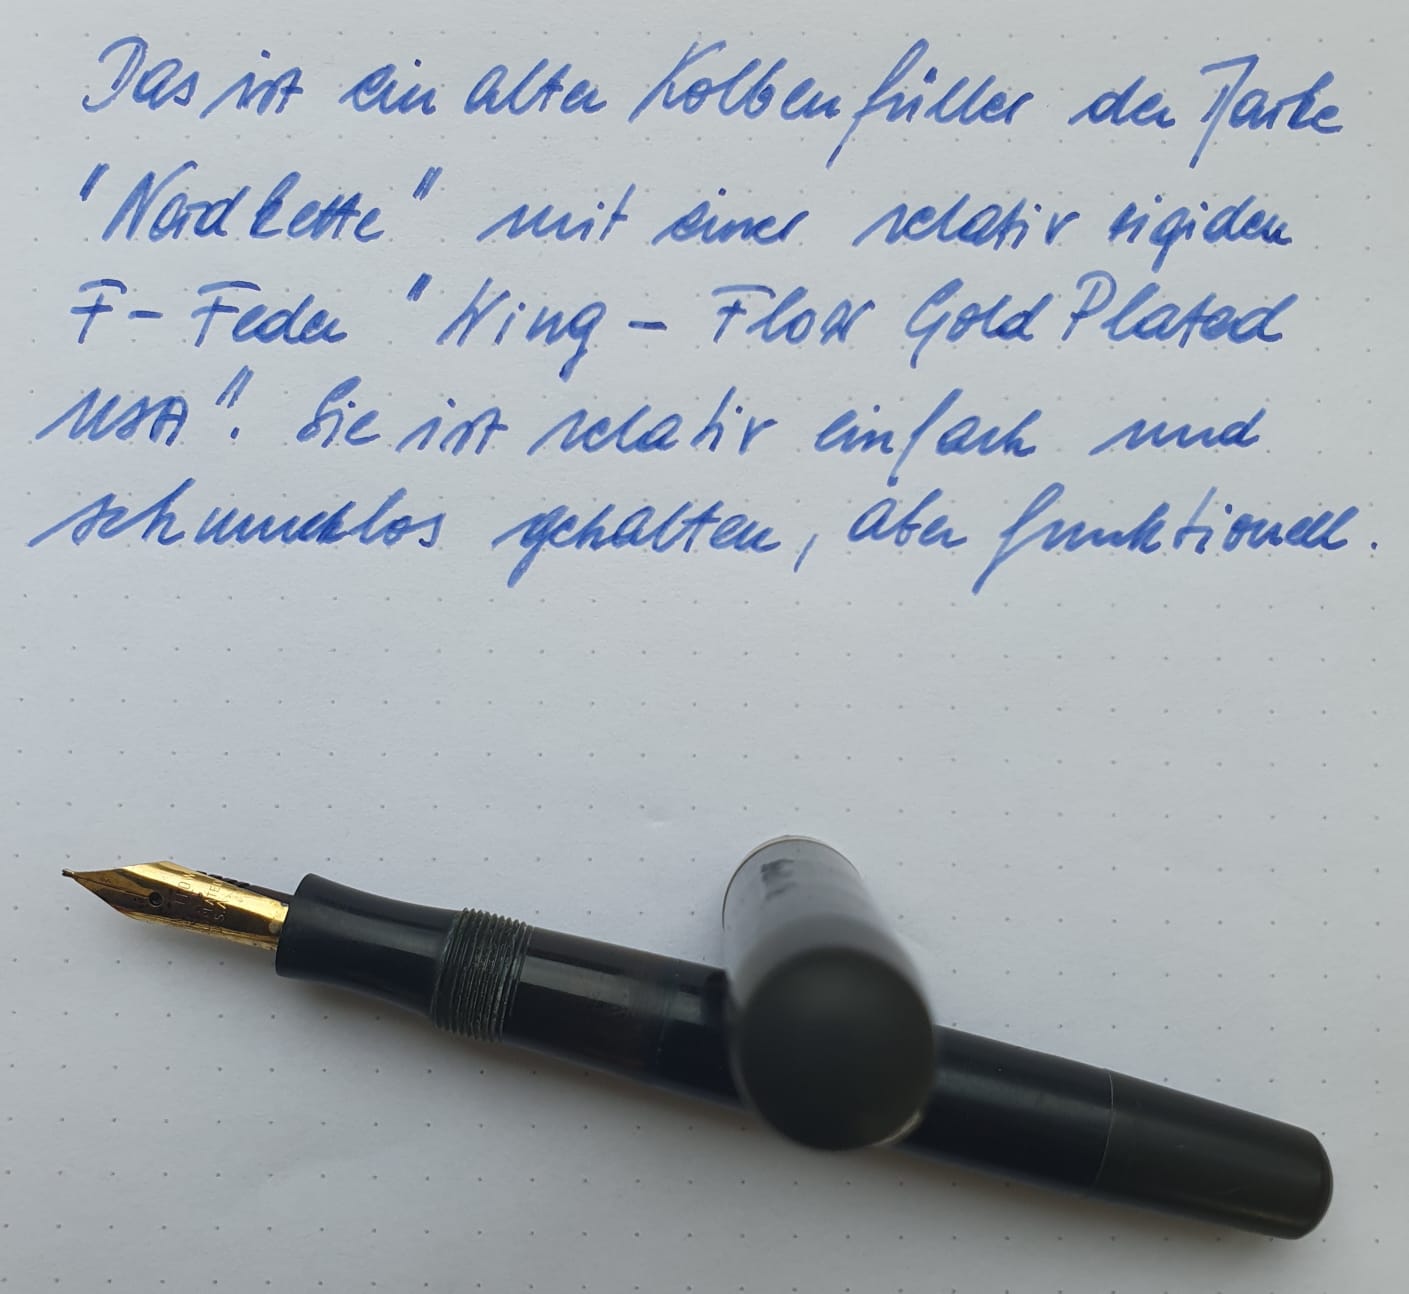 Das ist ein alter Kolbenfüller der Marke
"Nordkette" mit einer relativ rigiden
F-Feder "Wing-Flow Gold Plated
USA". Sie ist relativ einfach und
schmucklos gehalten, aber funktionell.